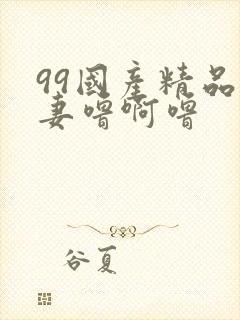 99國産精品
妻噜啊噜
谷夏